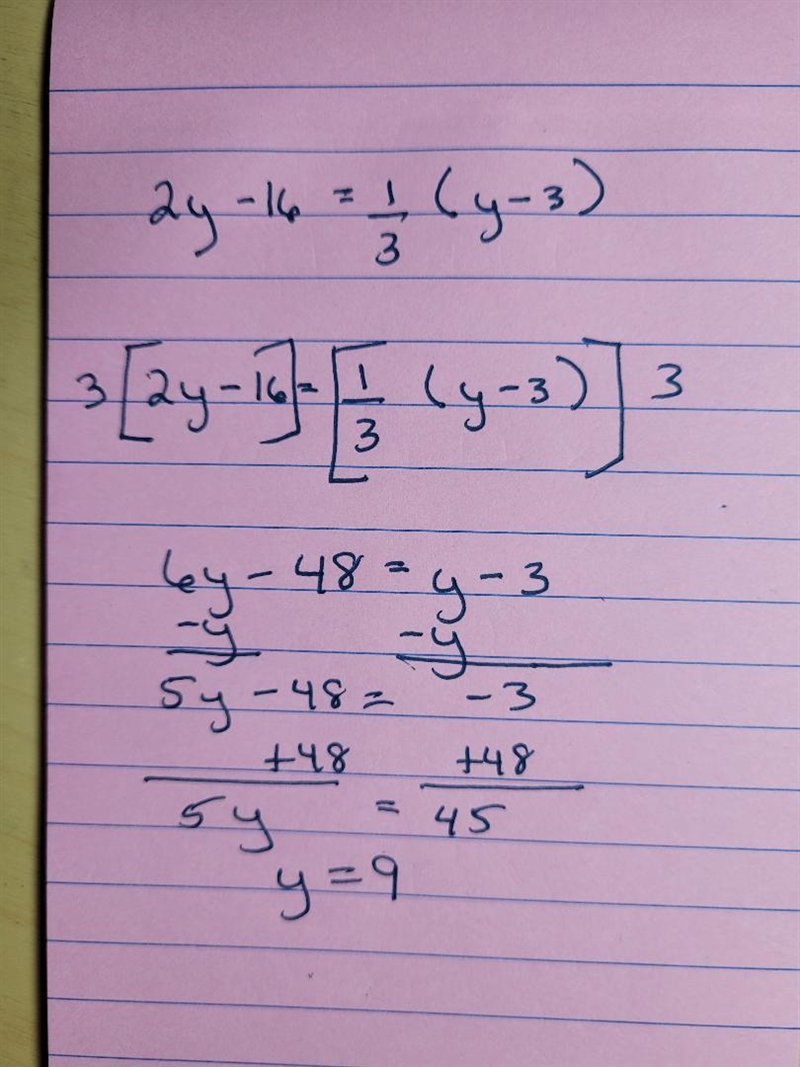 2y - 16 = 1/3 (y - 3)
3 [2y - 16] = [1/3 (y - 3)] 3
6y - 48 = y - 3
-y -y
5y - 48 = -3
+48 +48
5y = 45
y = 9